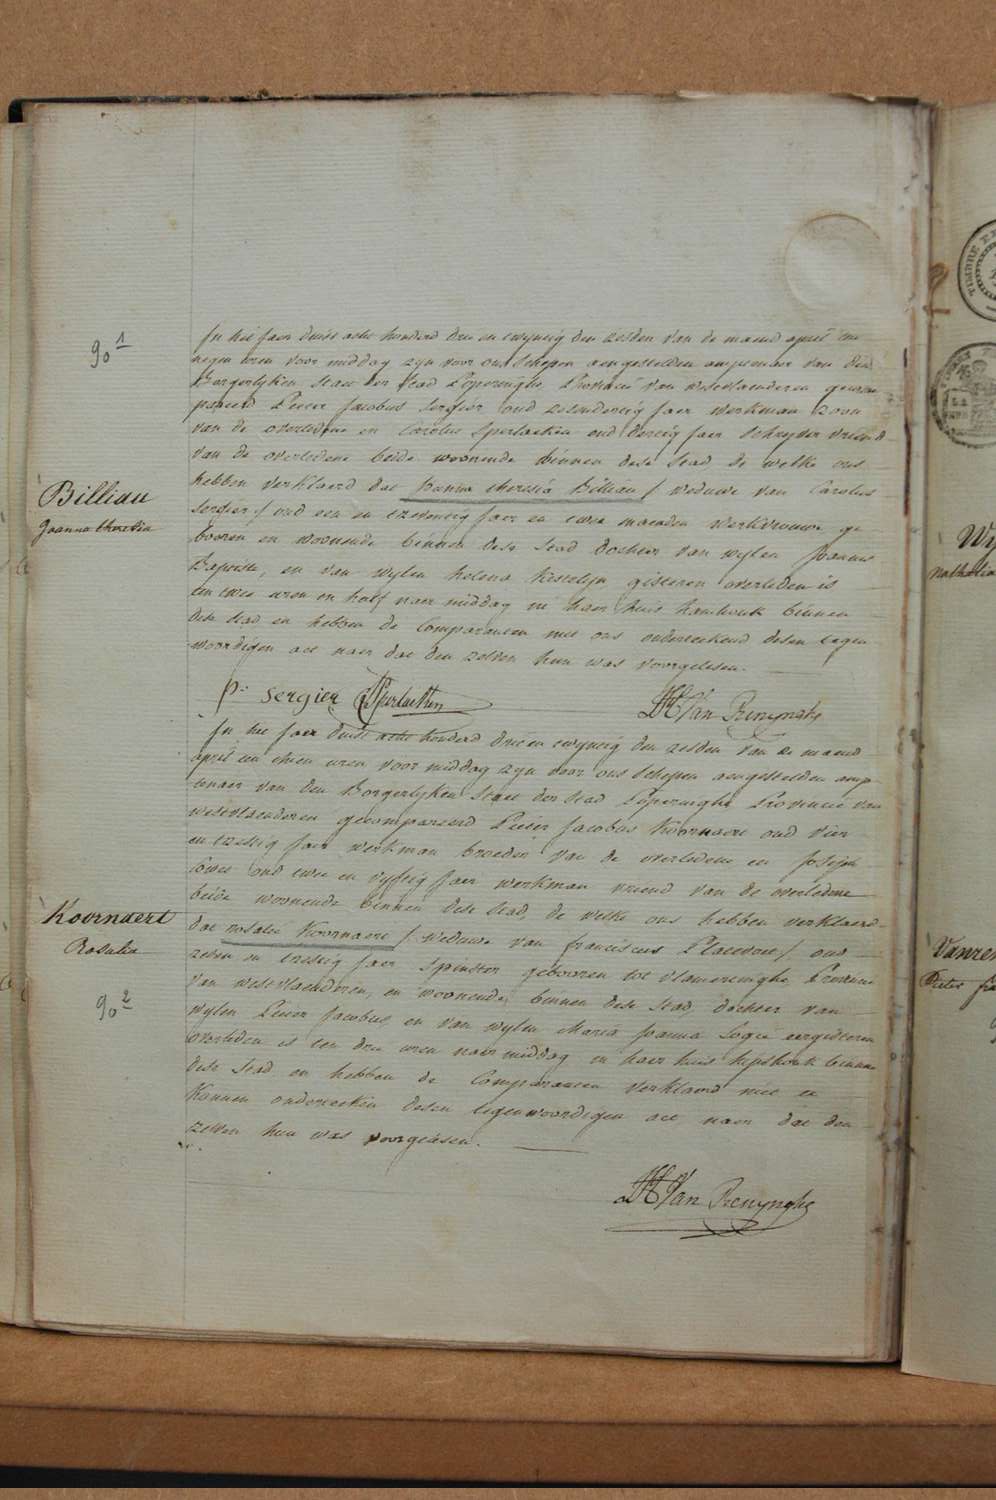 90 1
In het jaer duist acht honderd drie en twijntig den zesden van de maend april ten
negen uren voor middag zyn voor ons Schepen aengestelden amptenaer van den
Borgerlyken staet der stad Poperinghe, Provincie van westvlaenderen gecom
pareerd Pieter Jacobus Sergier oud zesendertig jaer werkman zoon
van de overledene en Carolus Sperlaeken oud dertig jaer Schryver vriend
van de overledene beide woonende binnen dese stad de welke ons
hebben verklaerd dat Joanna theresia Billiau / weduwe van Carolus
Billiau
Joanna theresia
Sergier / oud een en tzeventig jaer en twee maenden werkvrouwe ge
booren en woonende binnen dese stad dochter van wylen Joannes
Baptiste, en van wylen helena Kestelyn gisteren overleden is
ten twee uren en half naer middag in haer huis binnen
dese stad en hebben de Comparanten met ons onderteekend desen tegen
woordigen act naer dat den zelven hun was voorgelesen.
P: Sergier C Sperlaecken
Van Renynghe
In het jaer duist acht honderd drie en twijntig den zesden van de maend
april ten thien uren voor middag zyn voor ons Schepen aengestelden amp
tenaer van den Borgerlyken staet der stad Poperinghe Provincie van
westvlaenderen gecompareerd Pieter Jacobus Koornaert oud vier
en tzestig jaer werkman broeder van de overledene en Joseph
oud twee en vyftig jaer werkman vriend van de overledene
beide woonende binnen dese stad, de welke ons hebben verklaerd
Koornaert
Rosalia
dat rosalie Koornaert / weduwe van franciscus / oud
zeven en tzestig jaer Spinster gebooren tot vlamertinghe, Provincie
90 2
van westvlaenderen, en woonende binnen dese stad, dochter van
wylen Pieter Jacobus, en van wylen Maria Joanna Logie eergisteren
overleden is ten drie uren naer middag in haer huis binnen
dese stad en hebben de Comparanten verklaerd niet te
Konnen onderteeken desen tegenwoordigen act naer dat den
zelven hun was voorgelesen.
Van Renynghe
Pieter